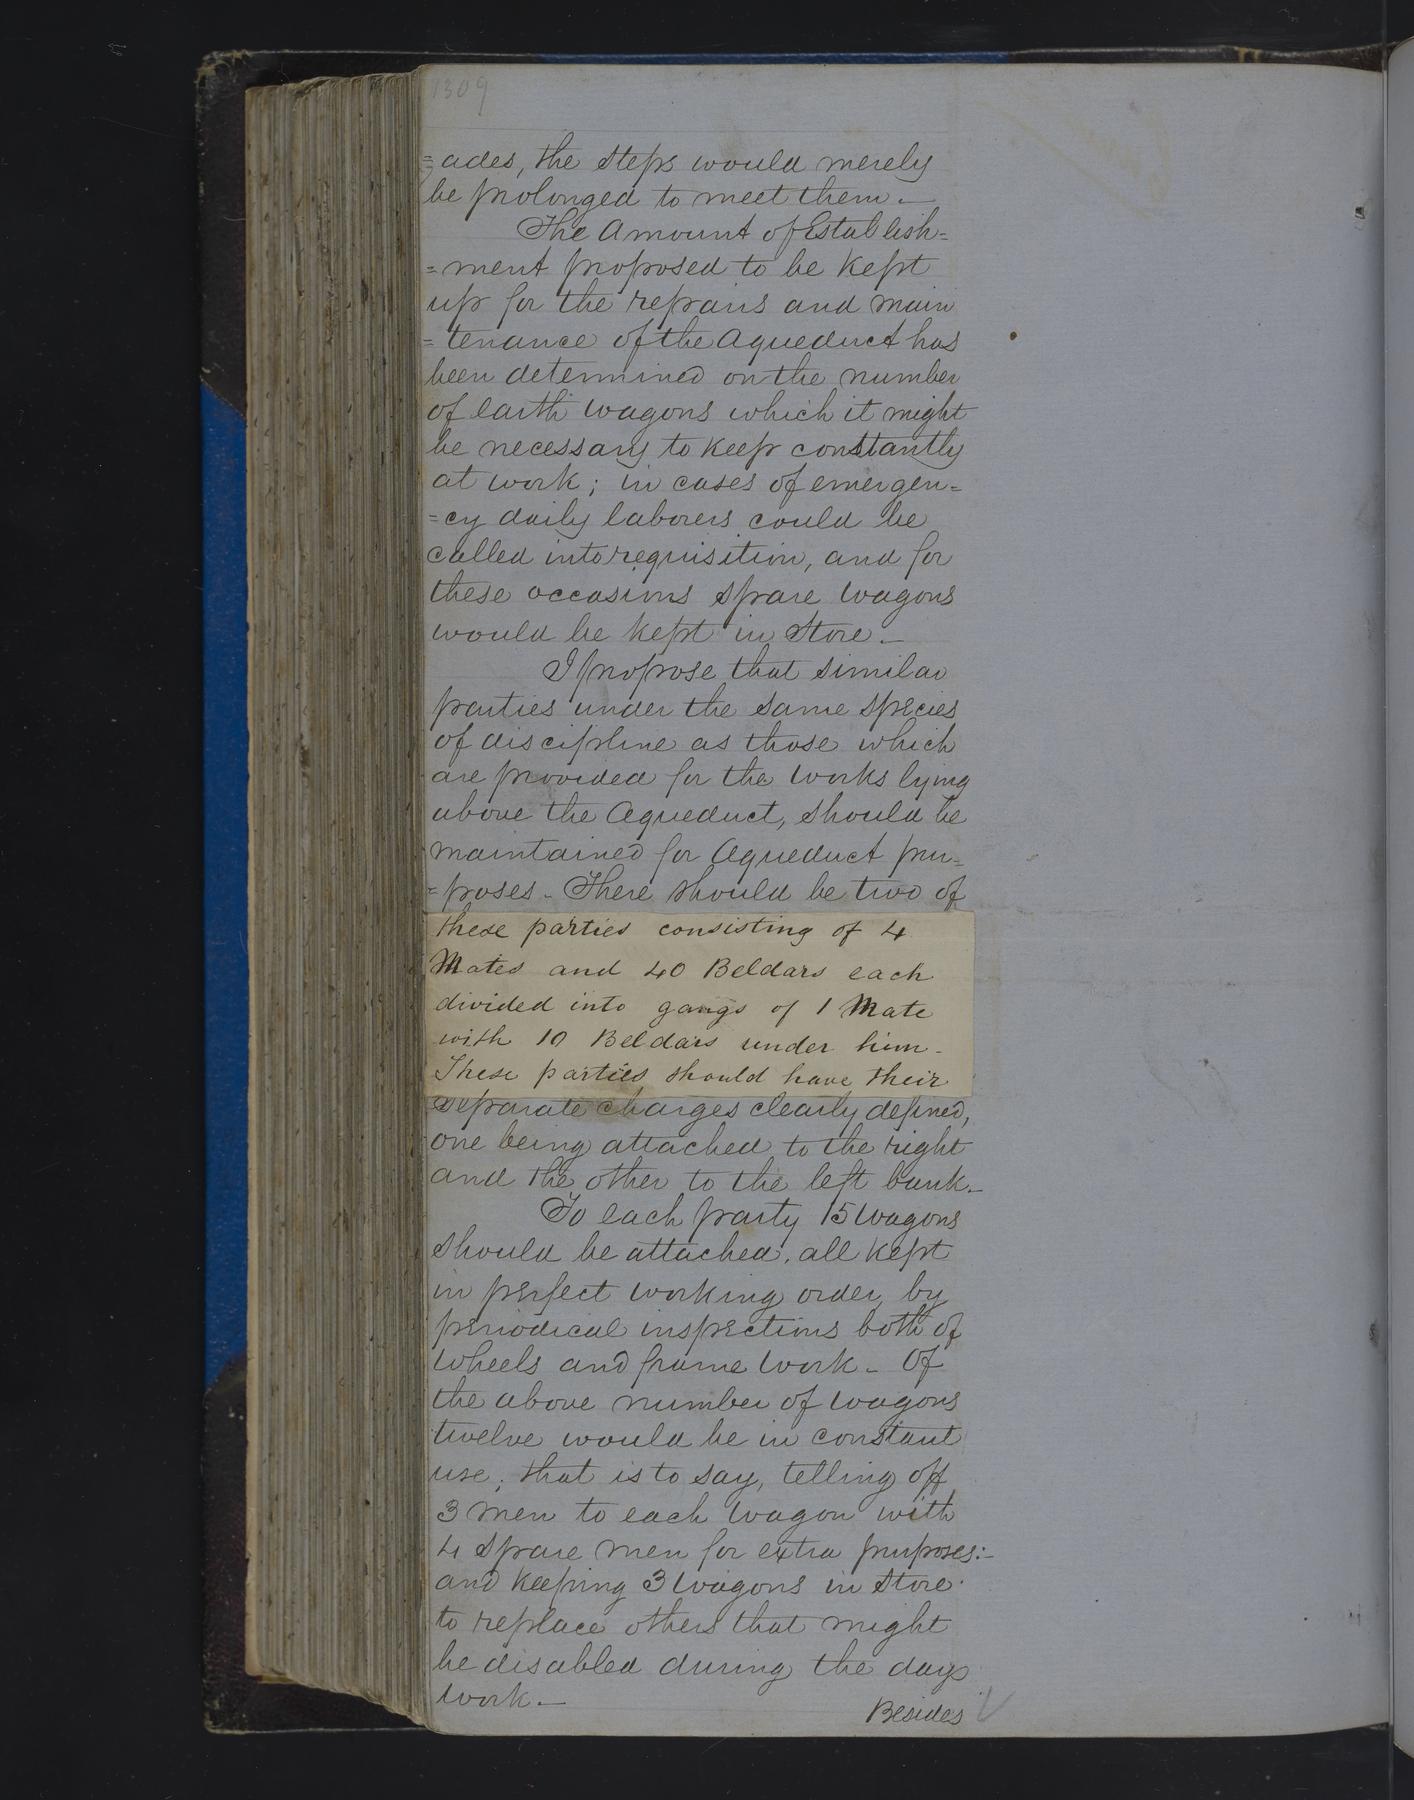 1309
=ades, the steps would merely
be prolonged to meet them.—
The Amount of Establish=
=ment proposed to be kept
up for the repairs and main
=tenance of the Aqueduct has
been determined on the number
of earth wagons which it might
be necessary to keep constantly
at work; in cases of emergen=
=cy daily laborers could be
called into requisition, and for
these occasions spare wagons
would be kept in Store.—
I propose that similar
parties under the same species
of discipline as those which
are provided for the works lying
above the Aqueduct, should be
maintained for Aqueduct pur=
=poses. There should be two of
these parties consisting of 4
Mates and 40 Beldars each
divided into gangs of 1 Mate
with 10 Beldars under him.
These parties should have their
separate charges clearly defined,
one being attached to the right
and the other to the left bank.—
To each party 15 wagons
should be attached, all kept
in perfect working order by
periodical inspections both of
wheels and frame work. Of
the above number of wagons
twelve would be in constant
use; that is to say, telling off
3 men to each wagon with
4 spare men for extra purposes:—
and keeping 3 wagons in store
to replace others that might
be disabled during the days
work.—
Besides